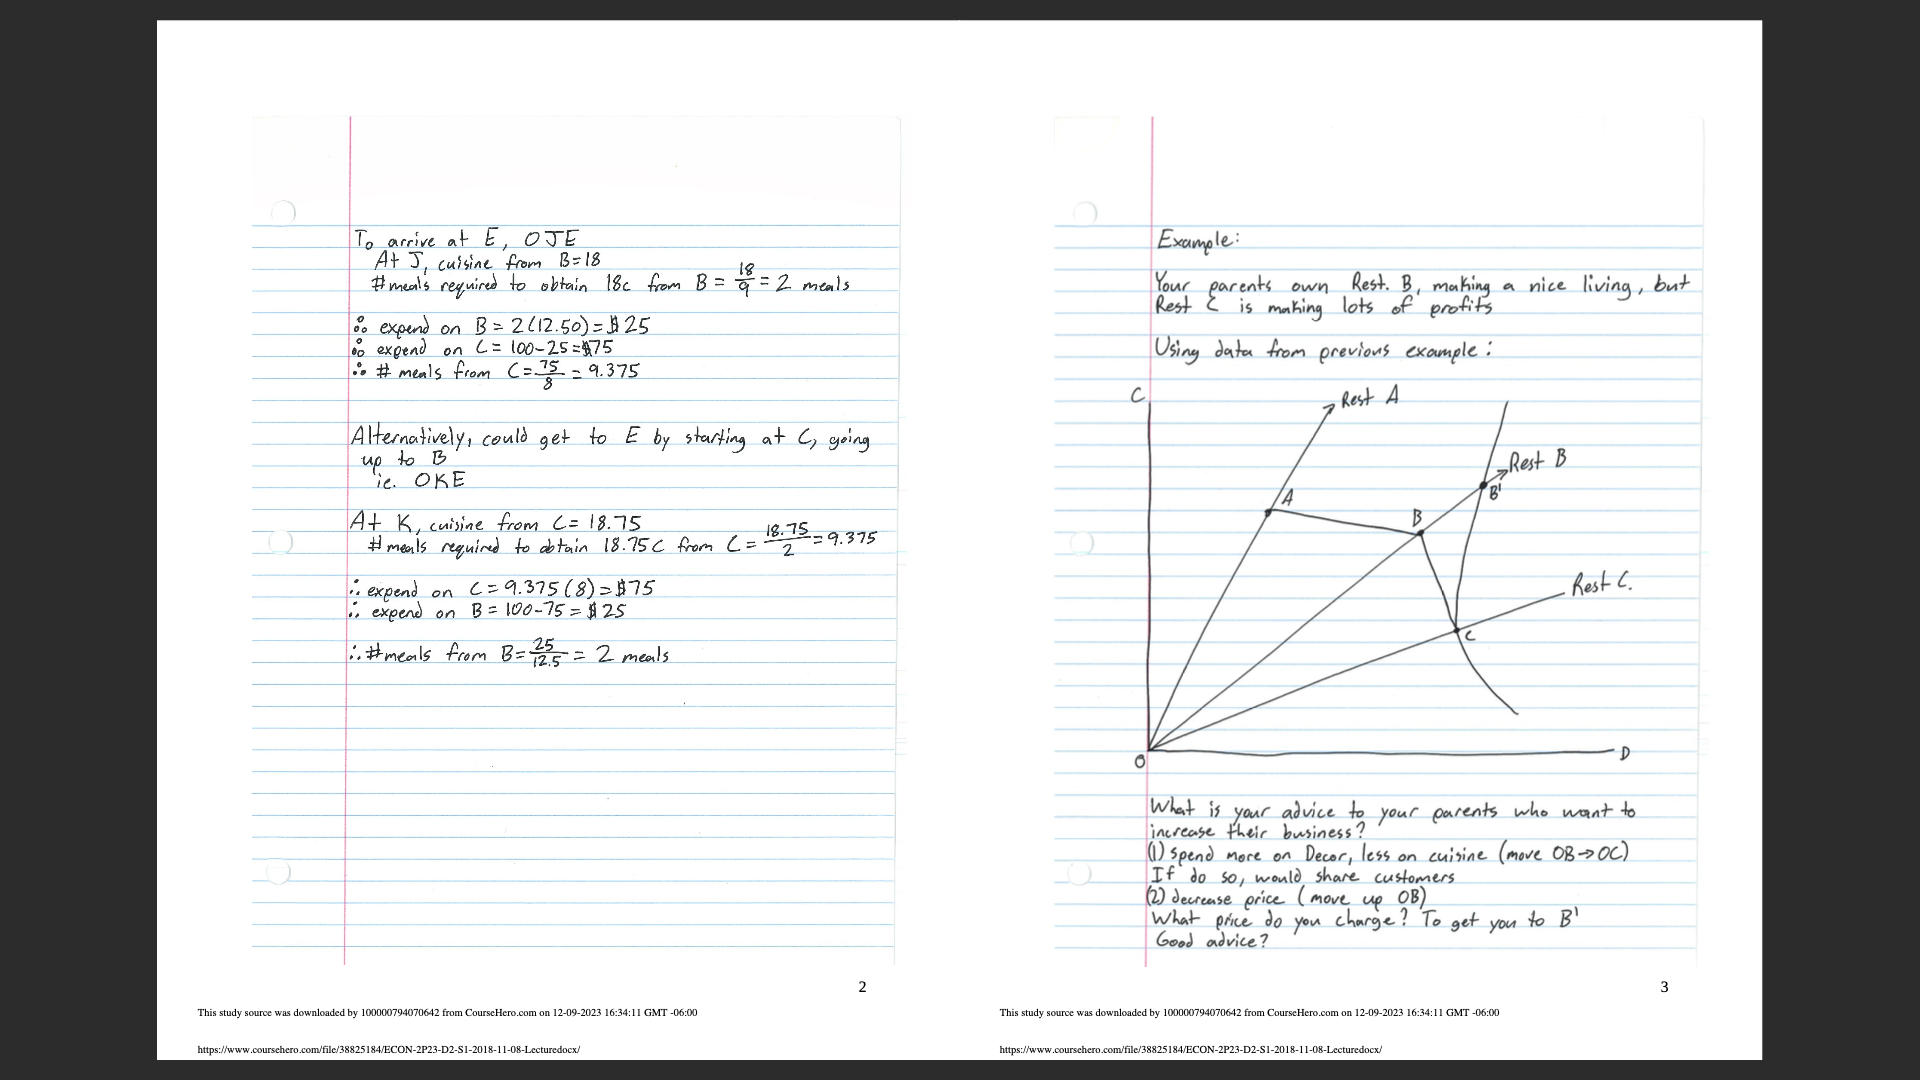 To arrive at E, OJE
At J, cuisine from B=18
# meals required to obtain 18c from B = 18/9 = 2 meals
∴ expend on B = 2(12.50) = $25
∴ expend on C = 100-25 = $75
∴ # meals from C = 75/8 = 9.375
Alternatively, could get to E by starting at C, going
up to B
ie. OKE
At K, cuisine from C = 18.75
# meals required to obtain 18.75C from C = 18.75/2 = 9.375
∴ expend on C = 9.375(8) = $75
∴ expend on B = 100-75 = $25
∴ # meals from B = 25/12.5 = 2 meals
2
This study source was downloaded by 100000794070642 from CourseHero.com on 12-09-2023 16:34:11 GMT -06:00
https://www.coursehero.com/file/38825184/ECON-2P23-D2-S1-2018-11-08-Lecturedocx/
Example:
Your parents own Rest. B, making a nice living, but
Rest C is making lots of profits
Using data from previous example:
C
Rest A
Rest B
A
B'
B
Rest C.
C
O
D
What is your advice to your parents who want to
increase their business?
(1) Spend more on Decor, less on cuisine (move OB→OC)
If do so, would share customers
(2) decrease price (move up OB)
What price do you charge? To get you to B'
Good advice?
3
This study source was downloaded by 100000794070642 from CourseHero.com on 12-09-2023 16:34:11 GMT -06:00
https://www.coursehero.com/file/38825184/ECON-2P23-D2-S1-2018-11-08-Lecturedocx/